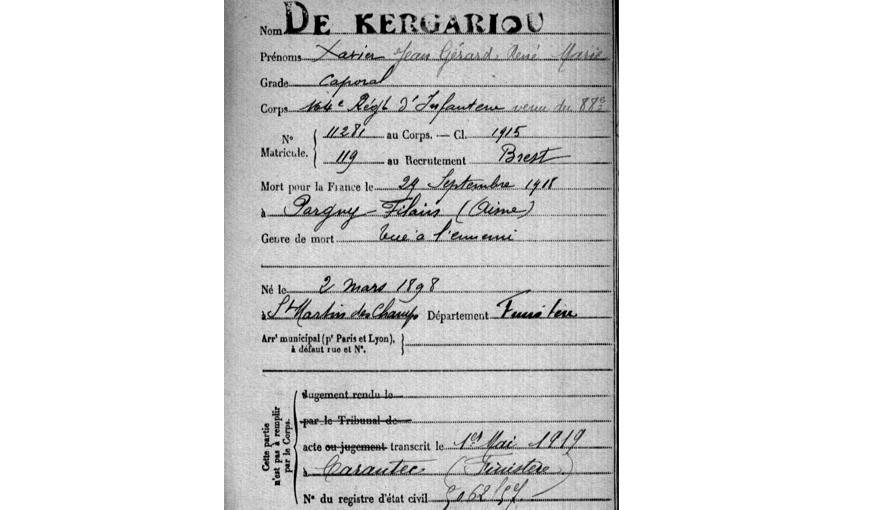 Nom DE KERGARIOU
Prénoms Xavier Jean Gérard René Marie
Grade Caporal
Corps Régt d'Infanterie venu du 88e
No Matricule. 11281 au Corps. — Cl. 1915
119 au Recrutement Brest
Mort pour la France le 29 Septembre 1918
à Pargny-Filain (Aisne)
Genre de mort tué à l'ennemi
Né le 2 mars 1898
à St Martin des Champs Département Finistère
Arrt municipal (pr Paris et Lyon),
à défaut rue et No.
Cette partie
n'est pas à remplir
par le Corps.
Jugement rendu le
par le Tribunal de
acte ou jugement transcrit le 1er Mai 1919
à Carantec (Finistère)
No du registre d'état civil